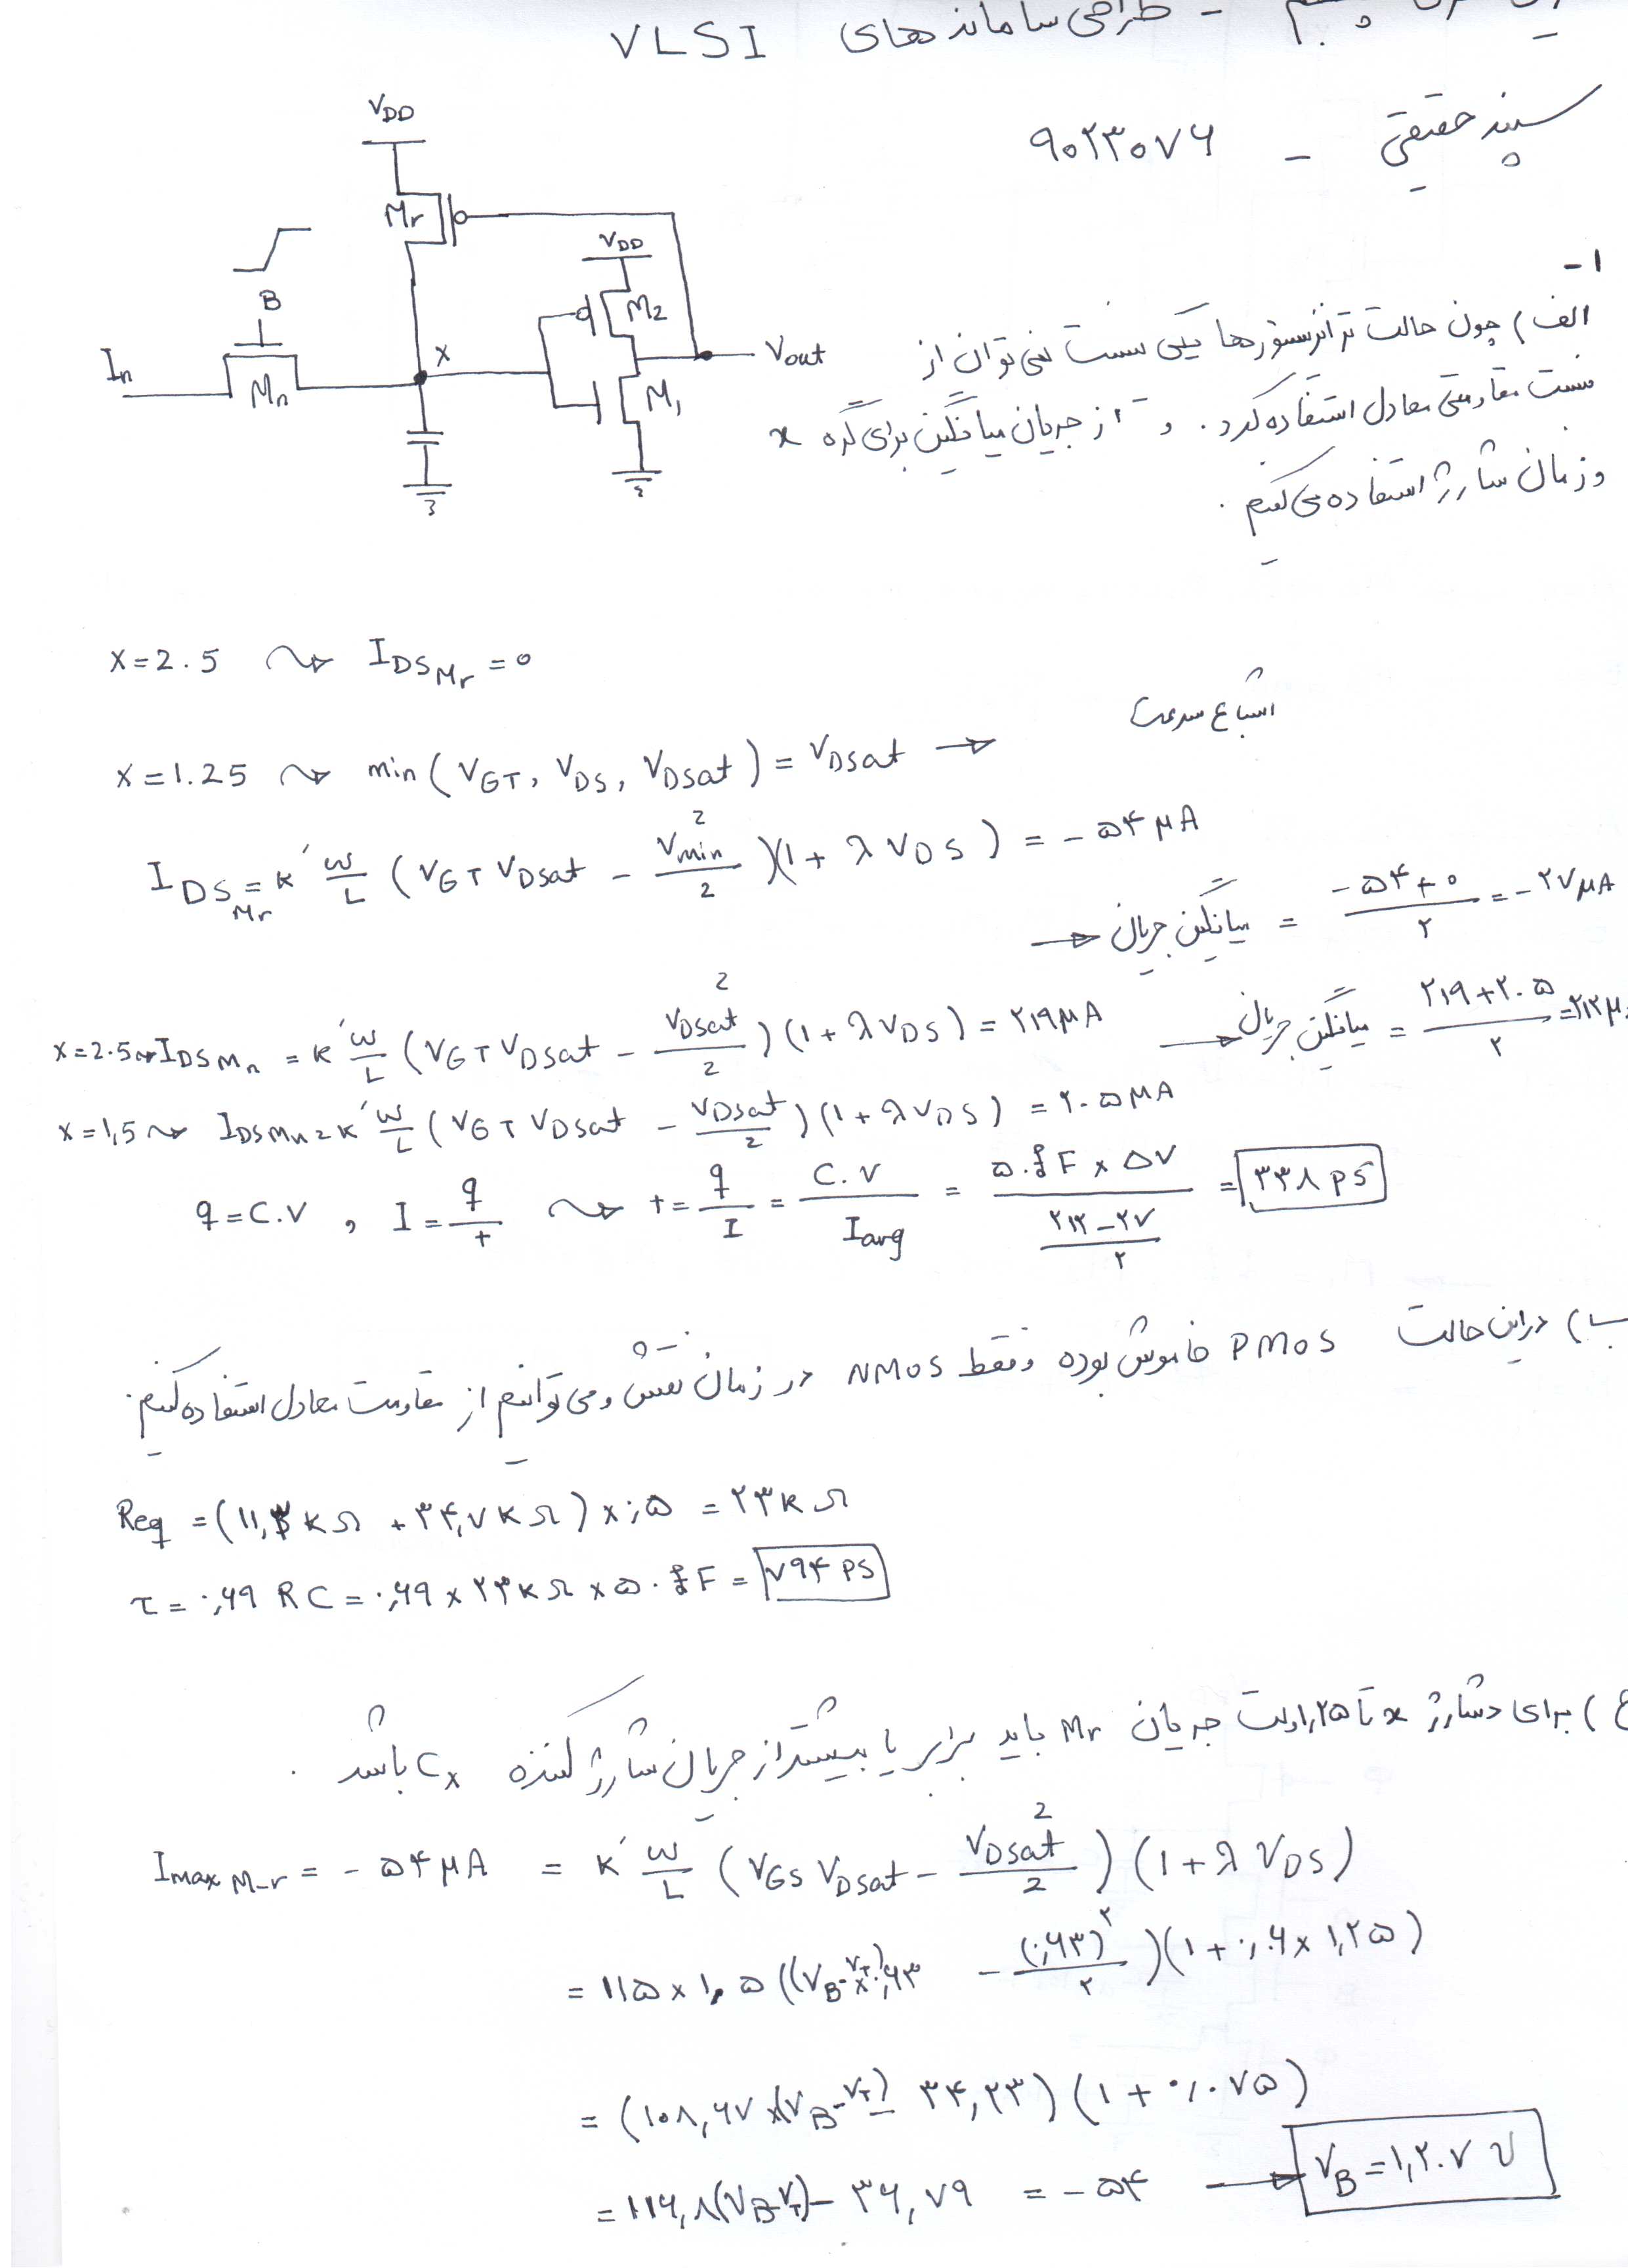 طراحی سامانه های VLSI
سپند حقیقی - ۹۰۲۳۰۷۶
VDD
Mr
VDD
B
M2
In
x
Vout
Mn
M1
۱-
الف) چون حالت ترانزیستورها یکی نیست نمی توان از
نسبت مقاومتی معادل استفاده کرد. و از جریان میانگین برای گره x
و زمان شارژ استفاده می کنیم.
x=2.5 ⇝ IDS Mr = 0
x=1.25 ⇝ min(VGT, VDS, VDsat) = VDsat → اشباع سرعت
IDS Mr = K' W/L (VGT VDsat - Vmin²/2)(1+λVDS) = -۵۴ μA
→ میانگین جریان = (-۵۴+۰)/۲ = -۲۷μA
x=2.5 ⇝ IDS Mn = K' W/L (VGT VDsat - VDsat²/2)(1+λVDS) = ۲۱۹μA → میانگین جریان = (۲۱۹+۲۰۵)/۲ = ۲۱۲μ
x=1,5 ⇝ IDS Mn = K' W/L (VGT VDsat - VDsat/2)(1+λVDS) = ۲۰۵μA
q=C.V , I = q/t ⇝ t = q/I = C.V/Iavg = (۵۰fF × ΔV)/((۲۱۲-۲۷)/۲) = ۳۳۸ ps
ب) در این حالت PMOS خاموش بوده و فقط NMOS در زمان نقش و می توانیم از مقاومت معادل استفاده کنیم.
Req = (۱۱,۳ KΩ + ۳۴,۷ KΩ) × ۰,۵ = ۲۳ K Ω
τ = ۰,۶۹ RC = ۰,۶۹ × ۲۳ K Ω × ۵۰ fF = ۷۹۴ ps
ج) برای دشارژ x تا ۱,۲۵ ولت جریان Mr باید برابر یا بیشتر از جریان شارژ کننده Cx باشد.
Imax M-r = -۵۴ μA = K' W/L (VGS VDsat - VDsat²/2)(1+λVDS)
= ۱۱۵ × ۱,۵ ((VB-VT)×۰,۶۳ - (۰,۶۳)²/۲)(۱+۰,۰۶×۱,۲۵)
= (۱۰۸,۶۷ ×(VB-VT) - ۳۴,۲۳)(۱+۰/۰۷۵)
= ۱۱۶,۸(VB-VT) - ۳۶,۷۹ = -۵۴ → VB = ۱,۲۰۷ V